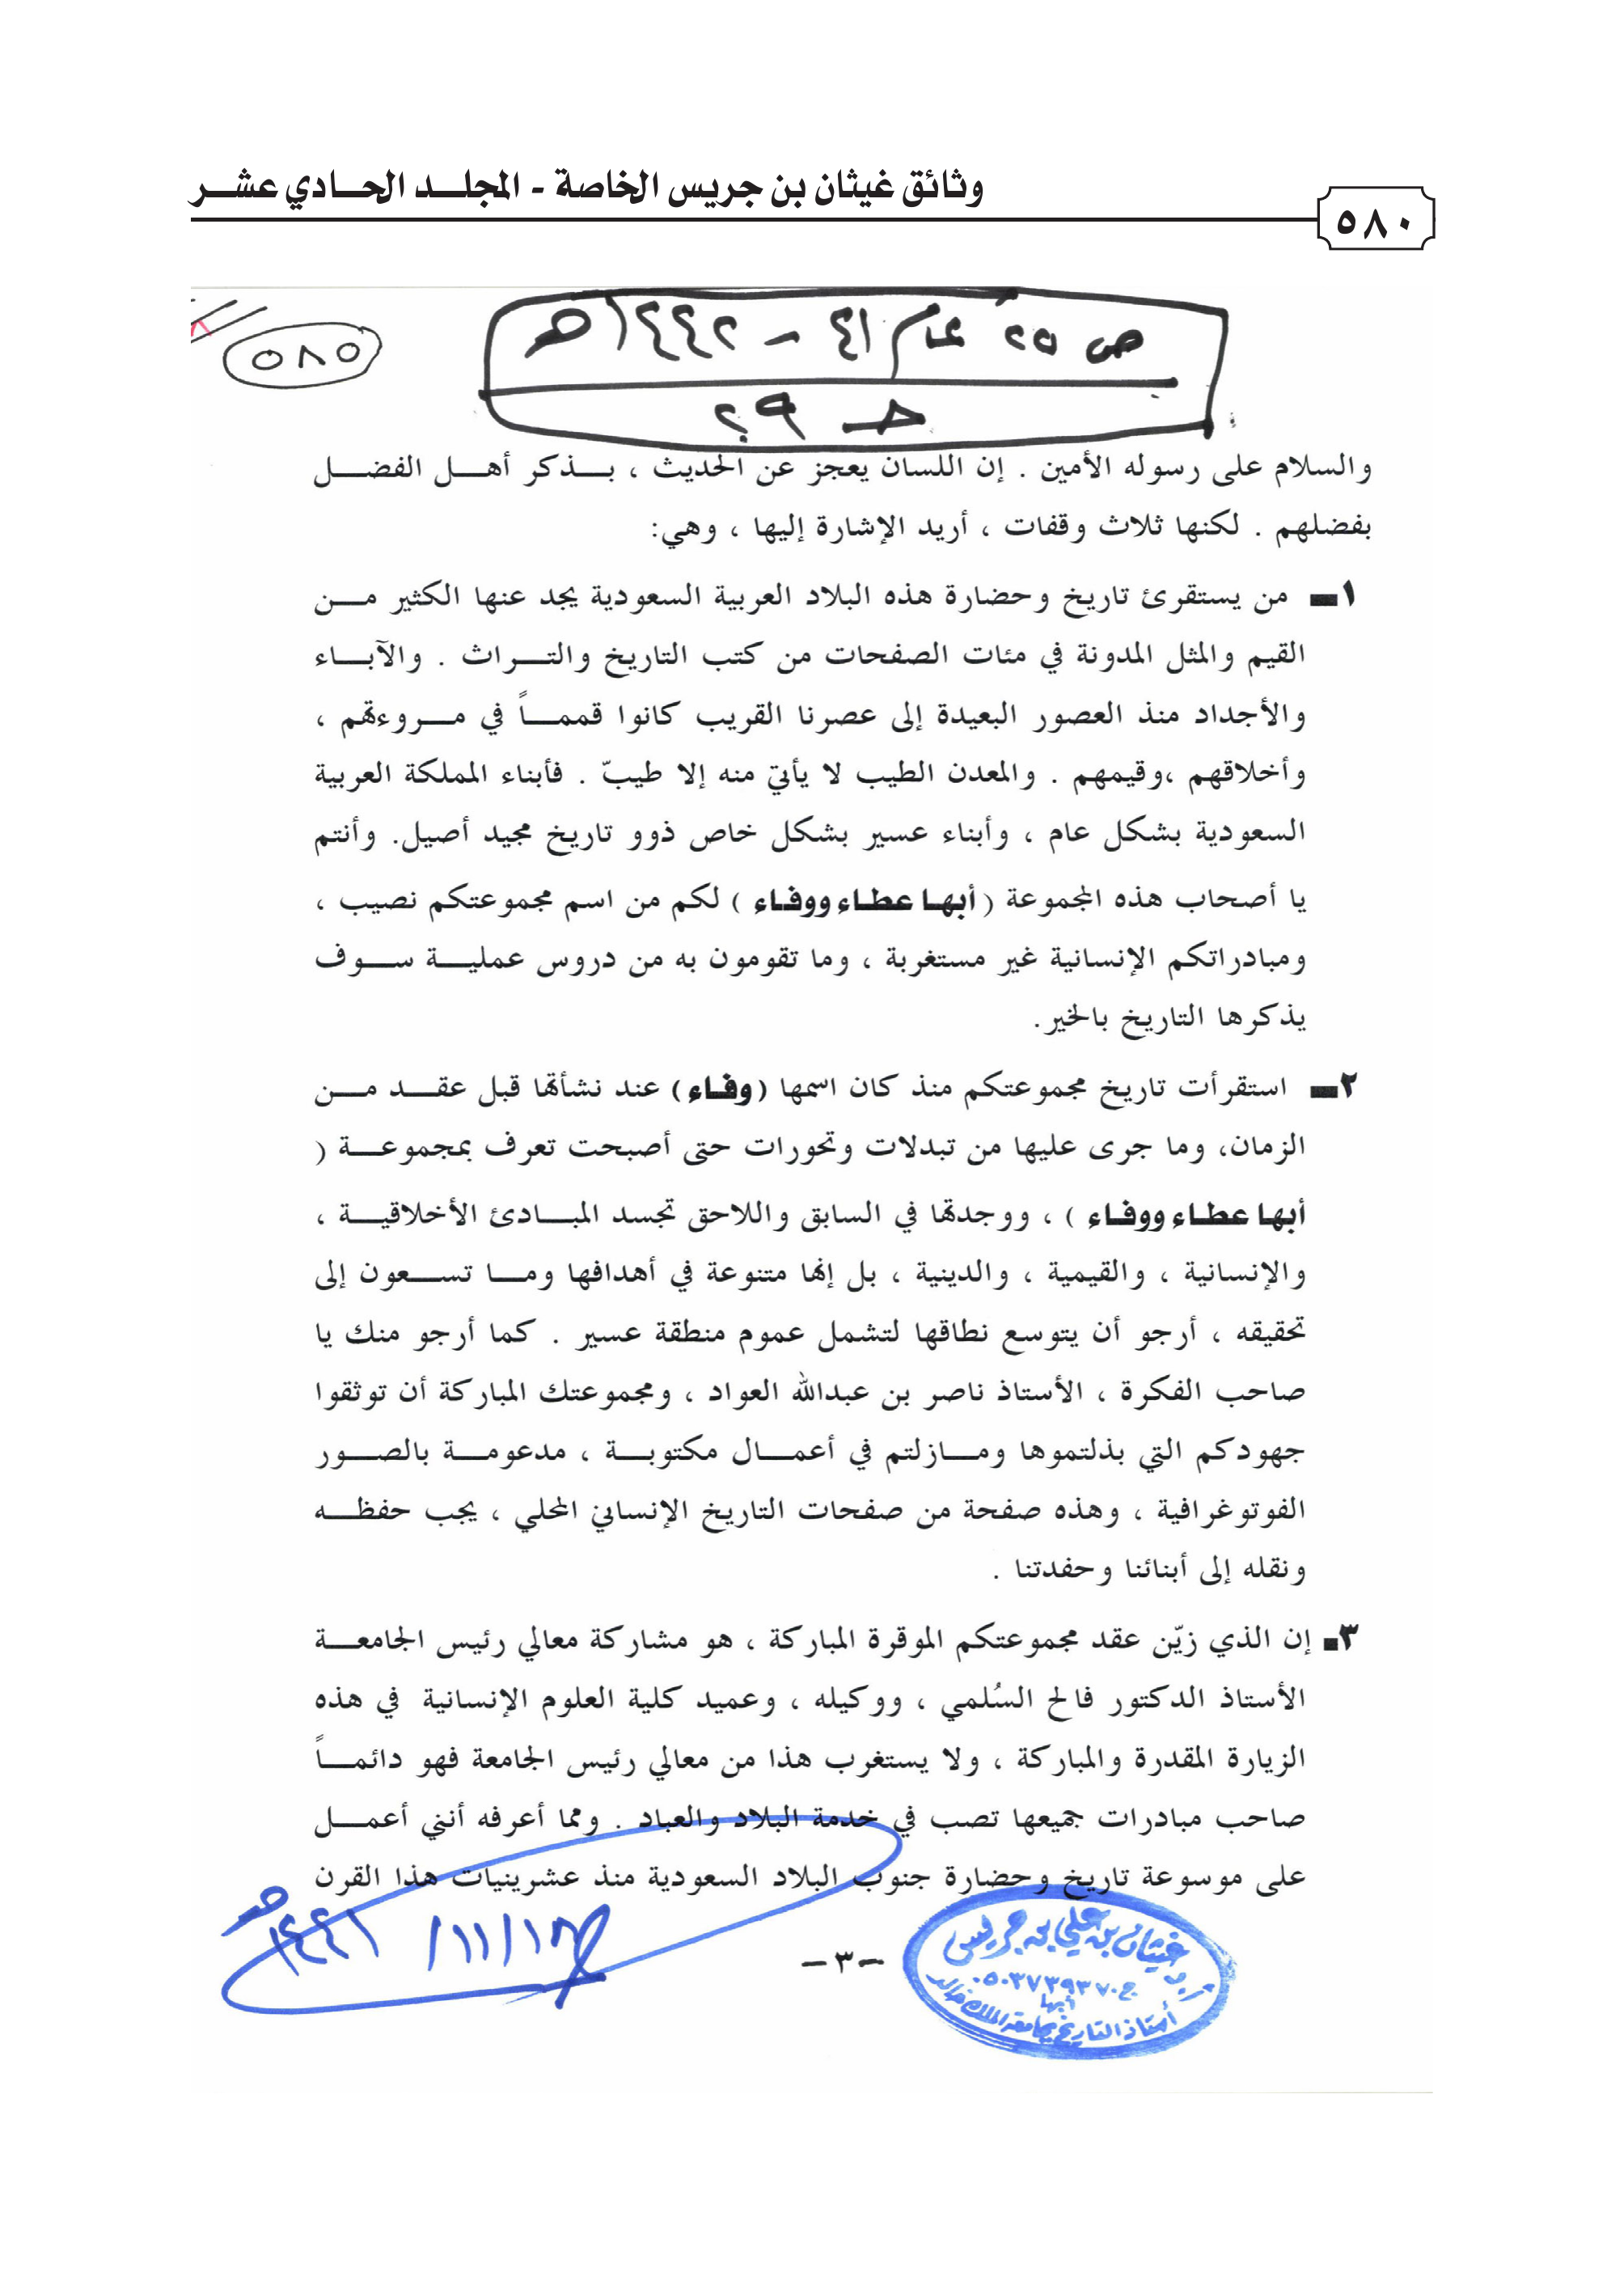 وثائق غيثان بن جريس الخاصة - المجلـــد الحـــادي عشـــر
٥٨٠
ص ٢٥ عام ٤١ - ١٤٤٢هـ
٥٨٥
حـ ٢٩
والسلام على رسوله الأمين . إن اللسان يعجز عن الحديث ، بـــذكر أهـــل الفضـــل
بفضلهم . لكنها ثلاث وقفات ، أريد الإشارة إليها ، وهي:
١ـ من يستقرئ تاريخ وحضارة هذه البلاد العربية السعودية يجد عنها الكثير مـــن
القيم والمثل المدونة في مئات الصفحات من كتب التاريخ والتـــراث . والآبـــاء
والأجداد منذ العصور البعيدة إلى عصرنا القريب كانوا قممـــاً في مـــروءتهم ،
وأخلاقهم ،وقيمهم . والمعدن الطيب لا يأتي منه إلا طيبّ . فأبناء المملكة العربية
السعودية بشكل عام ، وأبناء عسير بشكل خاص ذوو تاريخ مجيد أصيل. وأنتم
يا أصحاب هذه المجموعة ( أبهـا عطـاء ووفـاء ) لكم من اسم مجموعتكم نصيب ،
ومبادراتكم الإنسانية غير مستغربة ، وما تقومون به من دروس عمليـــة ســـوف
يذكرها التاريخ بالخير.
٢ـ استقرأت تاريخ مجموعتكم منذ كان اسمها ( وفـاء ) عند نشأتها قبل عقـــد مـــن
الزمان، وما جرى عليها من تبدلات وتحورات حتى أصبحت تعرف بمجموعـــة (
أبهـا عطـاء ووفـاء ) ، ووجدتها في السابق واللاحق تجسد المبـــادئ الأخلاقيـــة ،
والإنسانية ، والقيمية ، والدينية ، بل إنها متنوعة في أهدافها ومـــا تســـعون إلى
تحقيقه ، أرجو أن يتوسع نطاقها لتشمل عموم منطقة عسير . كما أرجو منك يا
صاحب الفكرة ، الأستاذ ناصر بن عبدالله العواد ، ومجموعتك المباركة أن توثقوا
جهودكم التي بذلتموها ومـــازلتم في أعمـــال مكتوبـــة ، مدعومـــة بالصـــور
الفوتوغرافية ، وهذه صفحة من صفحات التاريخ الإنساني المحلي ، يجب حفظـــه
ونقله إلى أبنائنا وحفدتنا .
٣ـ إن الذي زيّن عقد مجموعتكم الموقرة المباركة ، هو مشاركة معالي رئيس الجامعـــة
الأستاذ الدكتور فالح السُلمي ، ووكيله ، وعميد كلية العلوم الإنسانية في هذه
الزيارة المقدرة والمباركة ، ولا يستغرب هذا من معالي رئيس الجامعة فهو دائمـــاً
صاحب مبادرات جميعها تصب في خدمة البلاد والعباد . ومما أعرفه أنني أعمـــل
على موسوعة تاريخ وحضارة جنوب البلاد السعودية منذ عشرينيات هذا القرن
١٨/١١/١٤٤٢هـ
-٣-
أ.د غيثان بن علي بن جريس
ج.٠٥٠٣٧٣٩٣٧٠
أبها
أستاذ التاريخ بجامعة الملك خالد